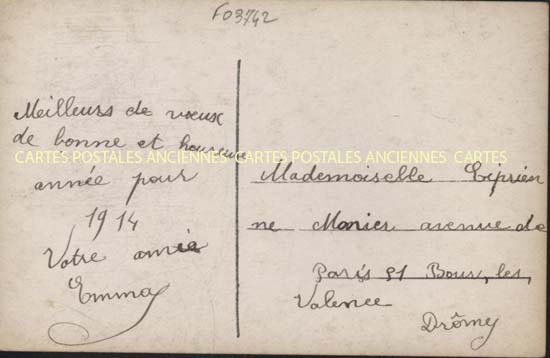 F03742
Meilleurs de vœux
de bonne et heureuse
CARTES POSTALES ANCIENNES CARTES POSTALES ANCIENNES CARTES
année pour
1914
Votre amie
Emma
Mademoiselle Ciprien
ne Monier avenue de
Paris 91 Bour, les,
Valence
Drôme